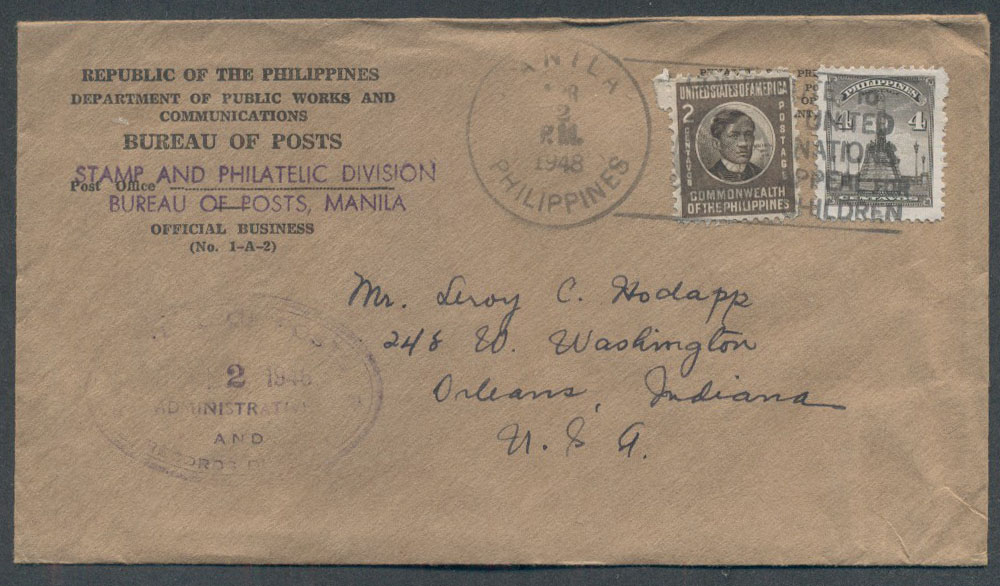 REPUBLIC OF THE PHILIPPINES
DEPARTMENT OF PUBLIC WORKS AND
COMMUNICATIONS
BUREAU OF POSTS
STAMP AND PHILATELIC DIVISION
Post Office
BUREAU OF POSTS, MANILA
OFFICIAL BUSINESS
(No. 1-A-2)
MANILA
2
P.M.
1948
PHILIPPINES
UNITED STATES OF AMERICA
2
CENTAVOS
POSTAGE
COMMONWEALTH
OF THE PHILIPPINES
PHILIPPINES
4 4
CENTAVOS
TO
UNITED
NATIONS
APPEAL FOR
CHILDREN
Mr. Leroy C. Hodapp
248 W. Washington
Orleans, Indiana
U. S. A.
2 1948
ADMINISTRATIVE
AND
RECORDS